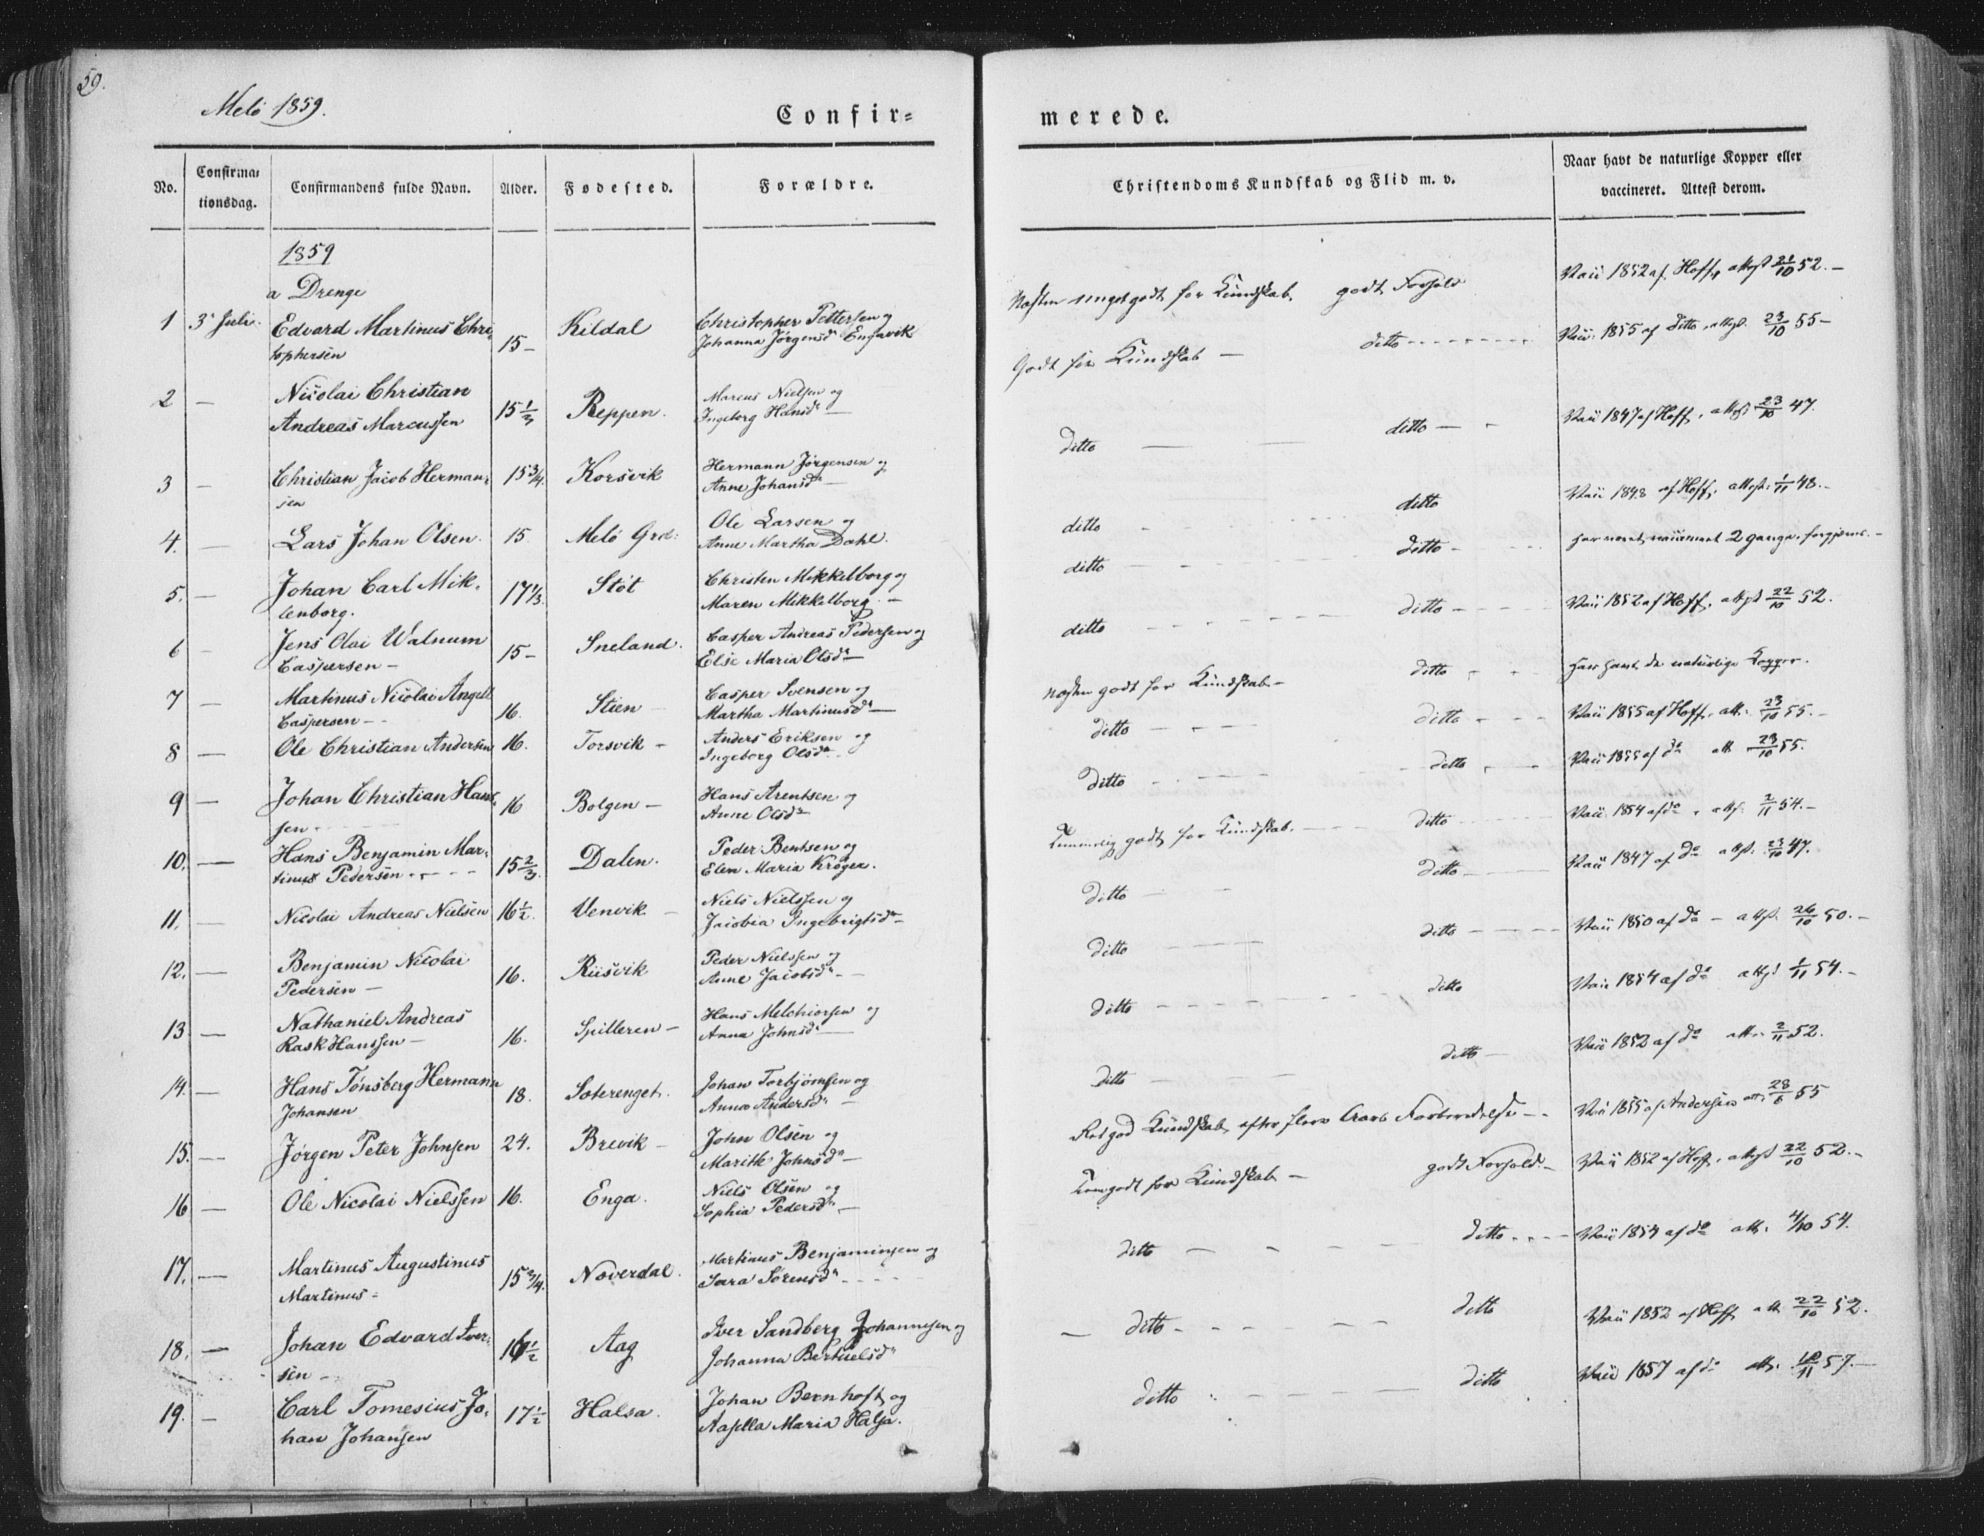 59.
Melö 1859.
Confir=
merede.
No.
Confirma=
tionsdag.
Confirmandens fulde Navn.
Alder.
Fødested.
Forældre.
Christendoms Kundskab og Flid m. v.
Naar havt de naturlige Kopper eller
vaccineret. Attest derom.
1859
a Drenge
1 3' Juli. Edvard Martinus Chri= 15 – Kildal Christopher Pettersen og
tophersen Johanna Jørgensd Engavik
godt Forhold Vacc 1852 af Hoff, attest 21/10 52. –
2 – Nicolai Christian 15 1/3 Reppen. Marcus Nielsen og
Andreas Marcussen Ingeborg Hansd –
Godt for Kundskab – ditto Vacc 1855 af ditto, attest 23/10 55 –
3 – Christian Jacob Herman= 15 3/4. Korsvik Hermann Jørgensen og
sen Anne Johansd –
ditto – – ditto – Vacc 1847 af Hoff, attest 23/10 47.
4. – Lars Johan Olsen. 15. Melö Grd: Ole Larsen og
Anne Martha Dahl.
ditto ditto Vacc 1848 af Hoff, attest 1/11 48. –
5. – Johan Carl Mik= 17 1/3. Stöt Christen Mikkelborg og
lenborg. Maren Mikkelborg –
ditto ditto – har været vaccineret 2 gange, forgjæves. –
6 – Jens Olai Walnum 15 – Sneland. Casper Andreas Pedersen og
Caspersen – Elise Maria Olsd –
ditto ditto Vacc 1852 af Hoff, attest 22/10 52.
7 – Martinus Nicolai Angell 16. Stien – Casper Svensen og
Caspersen – Martha Martinusd –
Næsten godt for Kundskab – ditto har havt de naturlige Kopper.
8 – Ole Christian Andersen 16. Torsvik – Anders Eriksen og
Ingeborg Olsd –
ditto ditto Vacc 1855 af Hoff, att. 23/10 55. –
9 – Johan Christian Han= 16 Bolgen – Hans Arentsen og
sen Anne Olsd –
ditto ditto Vacc 1855 af do att. 23/10 55.
10. – Hans Benjamin Mar= 15 2/3. Dalen. Peder Bentsen og
tinus Pedersen Elen Maria Kröger.
Temmelig godt for Kundskab. ditto Vacc 1854 af do, att. 2/11 54. –
11. – Nicolai Andreas Nielsen 16 1/2. Venvik – Niels Nielssen og
Jacobia Ingebrigtsd –
ditto ditto Vacc 1847 af do attst. 23/10 47.
12. – Benjamin Nicolai 16. Riisvik Peder Nielssen og
Pedersen – Anne Jacobsd –
ditto ditto Vacc 1850 af do – attst. 26/10 50. –
13 – Nathaniel Andreas 16. Spilleren – Hans Melchiorsen og
Rask Hanssen – Anna Johnsd –
ditto ditto Vacc 1854 af do attst 1/11 54. –
14. – Hans Tönsberg Hermann 18. Soterenget. Johan Torbjörnsen og
Johansen Anna Andersd –
ditto ditto – Vacc 1852 af do att. 2/11 52.
15. – Jørgen Peter Johnsen 24. Brevik – John Olsen og
Marith Johnsd –
Ret god Kundskab, efter flere Aars Forberedelse – Vacc 1855 af Andersen att. 28/6 55
16 – Ole Nicolai Nielssen 16. Enga. Niels Olsen og
Sophia Pedersd –
godt for Kundskab – godt Forhold. – Vacc 1852 af Hoff, attest 22/10 52. –
17. – Martinus Augustinus 15 3/4. Noverdal. Martinus Benjaminsen og
Martinus= Sara Sörensd
ditto ditto Vacc 1854 af do att. 4/10 54.
18. – Johan Edvard Iver= 16 1/2 Aag Iver Sandberg Johannesen og
sen – Johanna Bertuelsd
– ditto ditto Vacc 1852 af Hoff att. 22/10 52.
19. – Carl Tomesius Jo= 17 1/2 Halsa. Johan Bernhoft og
han Johansen Aasella Maria Halsa.
ditto ditto Vacc 1857 af do att. 10/11 57. –